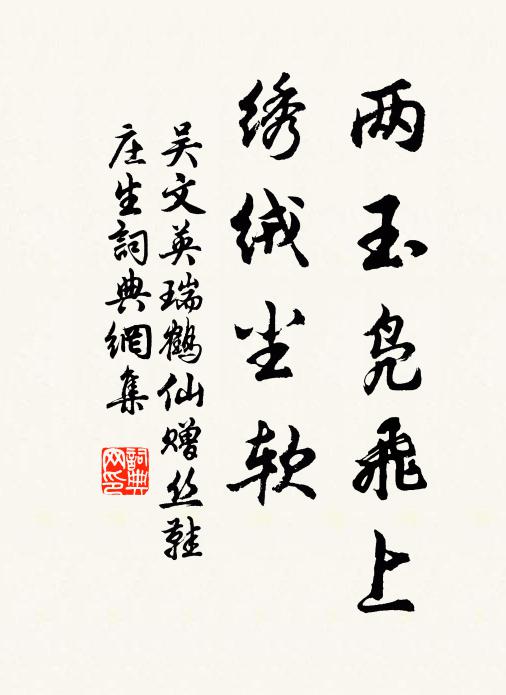 两玉凫飞上
绣绒尘软
吴文英瑞鹤仙赠丝鞋
庄生詞典網集
詞典网印